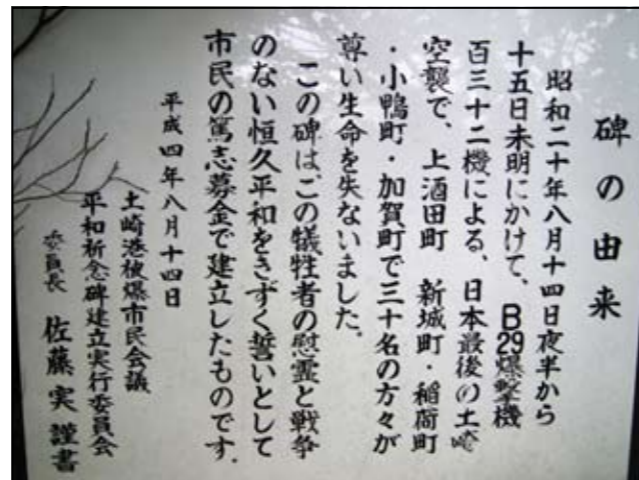 碑の由来
昭和二十年八月十四日夜半から
十五日未明にかけて、B29爆撃機
百三十二機による、日本最後の土崎
空襲で、上酒田町 新城町・稲荷町
・小鴨町・加賀町で三十名の方々が
尊い生命を失ないました。
この碑は、この犠牲者の慰霊と戦争
のない恒久平和をきずく誓いとして
市民の篤志募金で建立したものです.
平成四年八月十四日
土崎港被爆市民会議
平和祈念碑建立実行委員会
委員長 佐藤実謹書